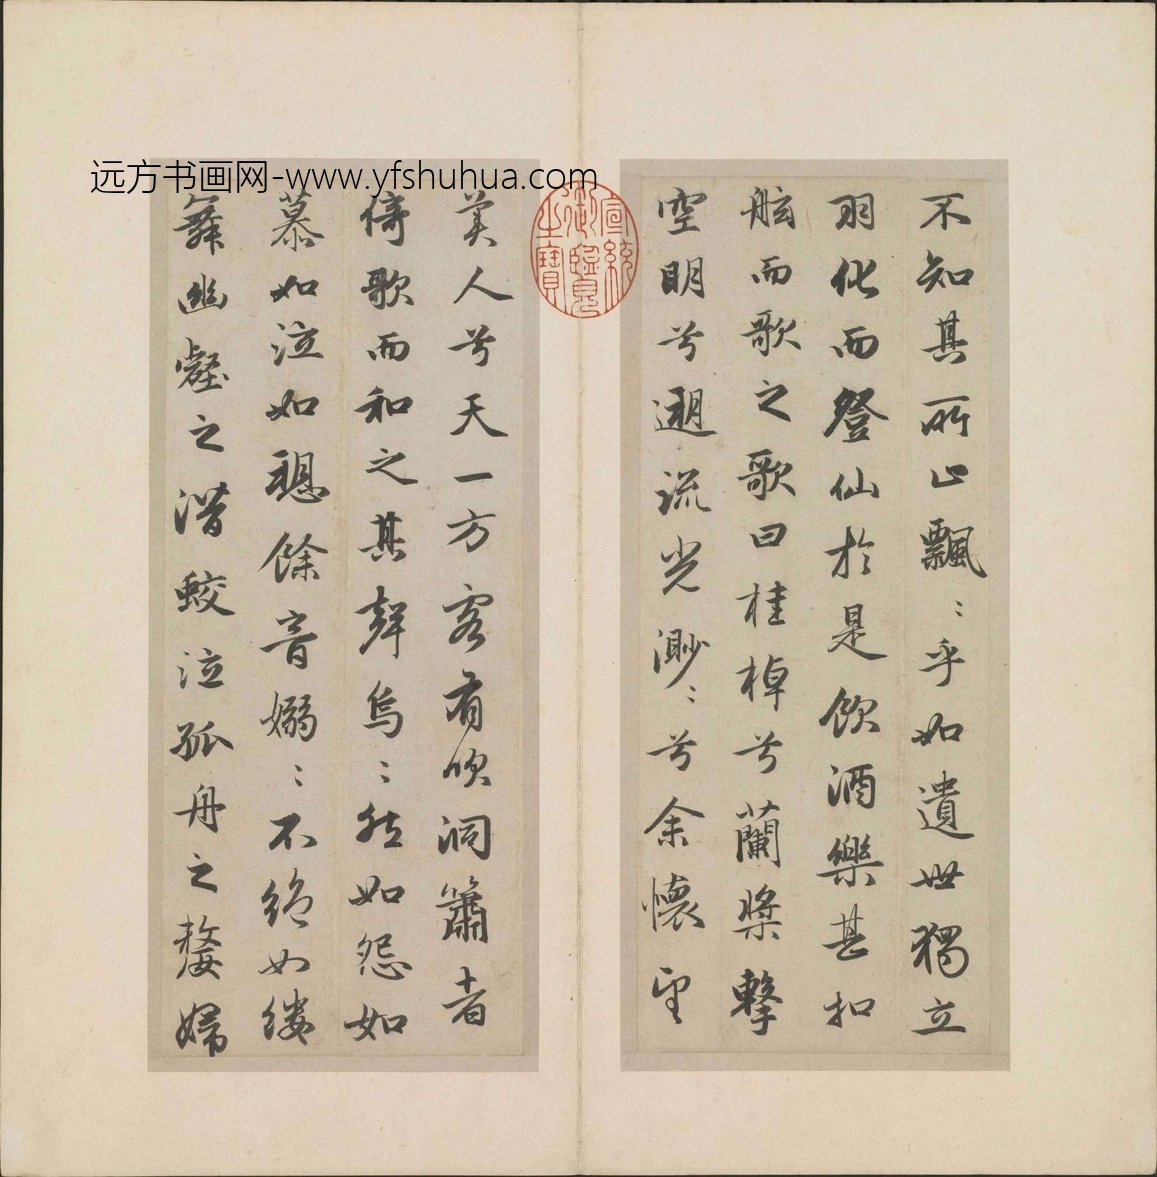 远方书画网-www.yfshuhua.com
不知其所止飄〻乎如遺世獨立
羽化而登仙於是飲酒樂甚扣
舷而歌之歌曰桂棹兮蘭槳擊
空明兮遡流光渺〻兮余懷望
宣統
御覽
之寶
美人兮天一方客有吹洞簫者
倚歌而和之其聲烏〻然如怨如
慕如泣如愬餘音嫋〻不絕如縷
舞幽壑之潛蛟泣孤舟之嫠婦